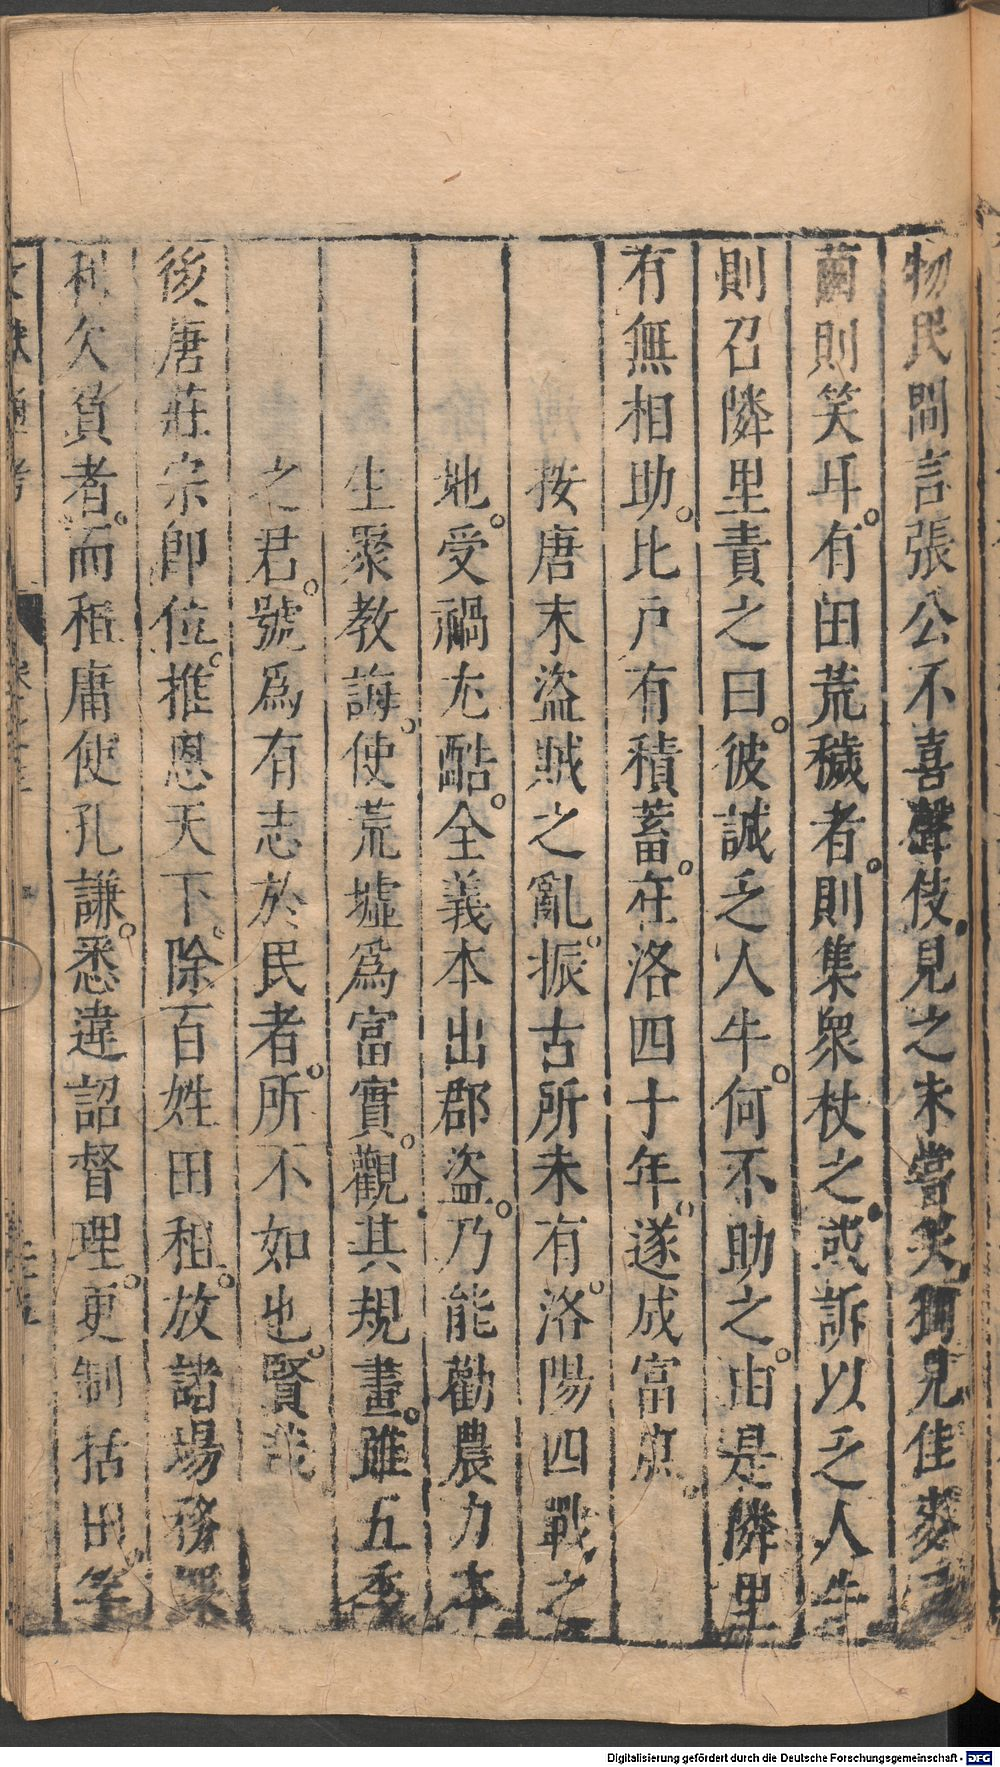 物民間言張公不喜聲伎見之未嘗笑獨見佳麥良
繭則笑耳。有田荒穢者。則集衆杖之。或訴以乏人牛
則召隣里責之曰。彼誠乏人牛。何不助之。由是隣里
有無相助。比戸有積蓄。在洛四十年。遂成富庶。
按唐末盜賊之亂。振古所未有。洛陽四戰之
地。受禍尤酷。全義本出郡盜。乃能勸農力本
生聚教誨。使荒墟爲富實。觀其規畫。雖五季
之君。號爲有志於民者。所不如也。賢哉
後唐莊宗卽位。推恩天下。除百姓田租。放諸場務課
利欠負者。而租庸使孔謙。悉違詔督理。更制括田竿
文獻通考
Digitalisierung gefördert durch die Deutsche Forschungsgemeinschaft - DFG